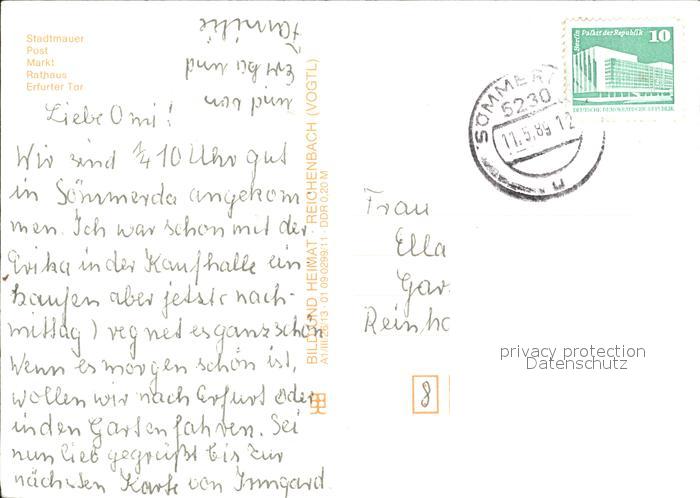 Stadtmauer
Post
Markt
Rathaus
Erfurter Tor
Liebe Omi!
Wir sind 1/4 10 Uhr gut
in Sömmerda angekom
men. Ich war schon mit der
Erika in der Kaufhalle ein
kaufen aber jetzt (nach-
mittag) regnet es ganz schön
Wenn es morgen schön ist,
wollen wir nach Erfurt oder
in den Garten fahren. Sei
nun lieb gegrüßt bis zur
nächsten Karte von Irmgard
und von
und
Familie
BILD UND HEIMAT · REICHENBACH (VOGTL)
A1/III/26/13 · 01 09 0299/11 · DDR 0,20 M
Berlin Palast der Republik
10
DEUTSCHE DEMOKRATISCHE REPUBLIK
SÖMMER
5230
11.5.89 12
m
Frau
Ella
Gar
Reinh
8
privacy protection
Datenschutz